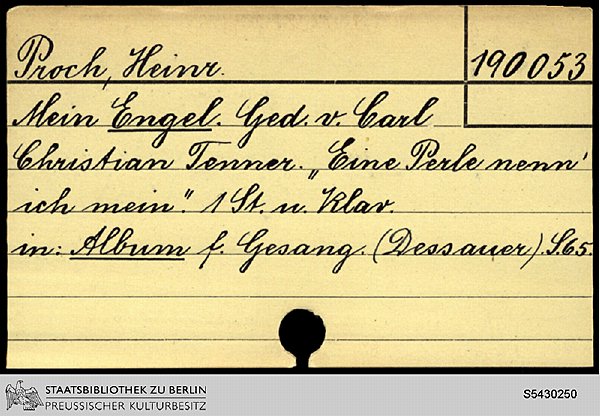 Proch, Heinr.
190053
Mein Engel. Ged. v. Carl
Christian Tenner. „Eine Perle nenn'
ich mein". 1 St. u. Klav.
in: Album f. Gesang. (Dessauer). S. 65.
STAATSBIBLIOTHEK ZU BERLIN
PREUSSISCHER KULTURBESITZ
S5430250